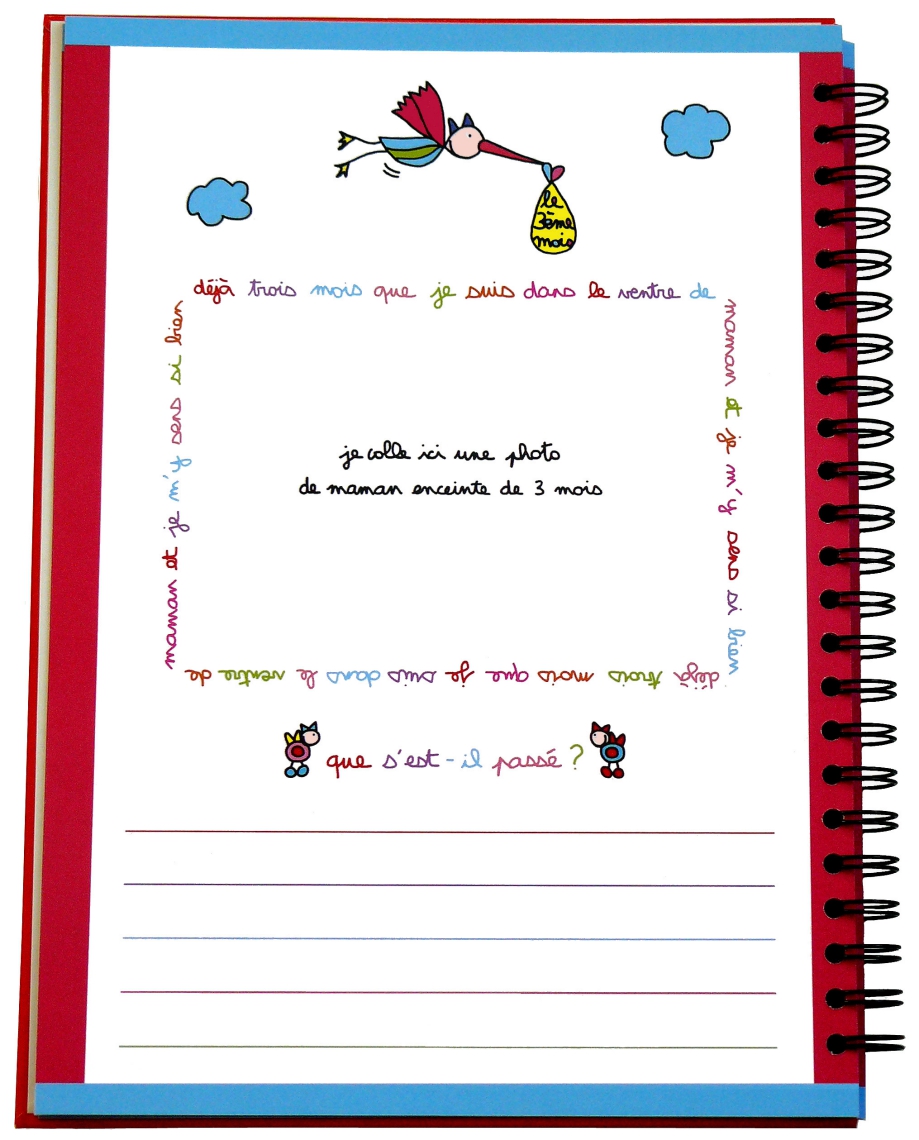 le
3ème
mois
déjà trois mois que je suis dans le ventre de
maman et je m'y sens si bien
déjà trois mois que je suis dans le ventre de
maman et je m'y sens si bien
je colle ici une photo
de maman enceinte de 3 mois
que s'est-il passé ?